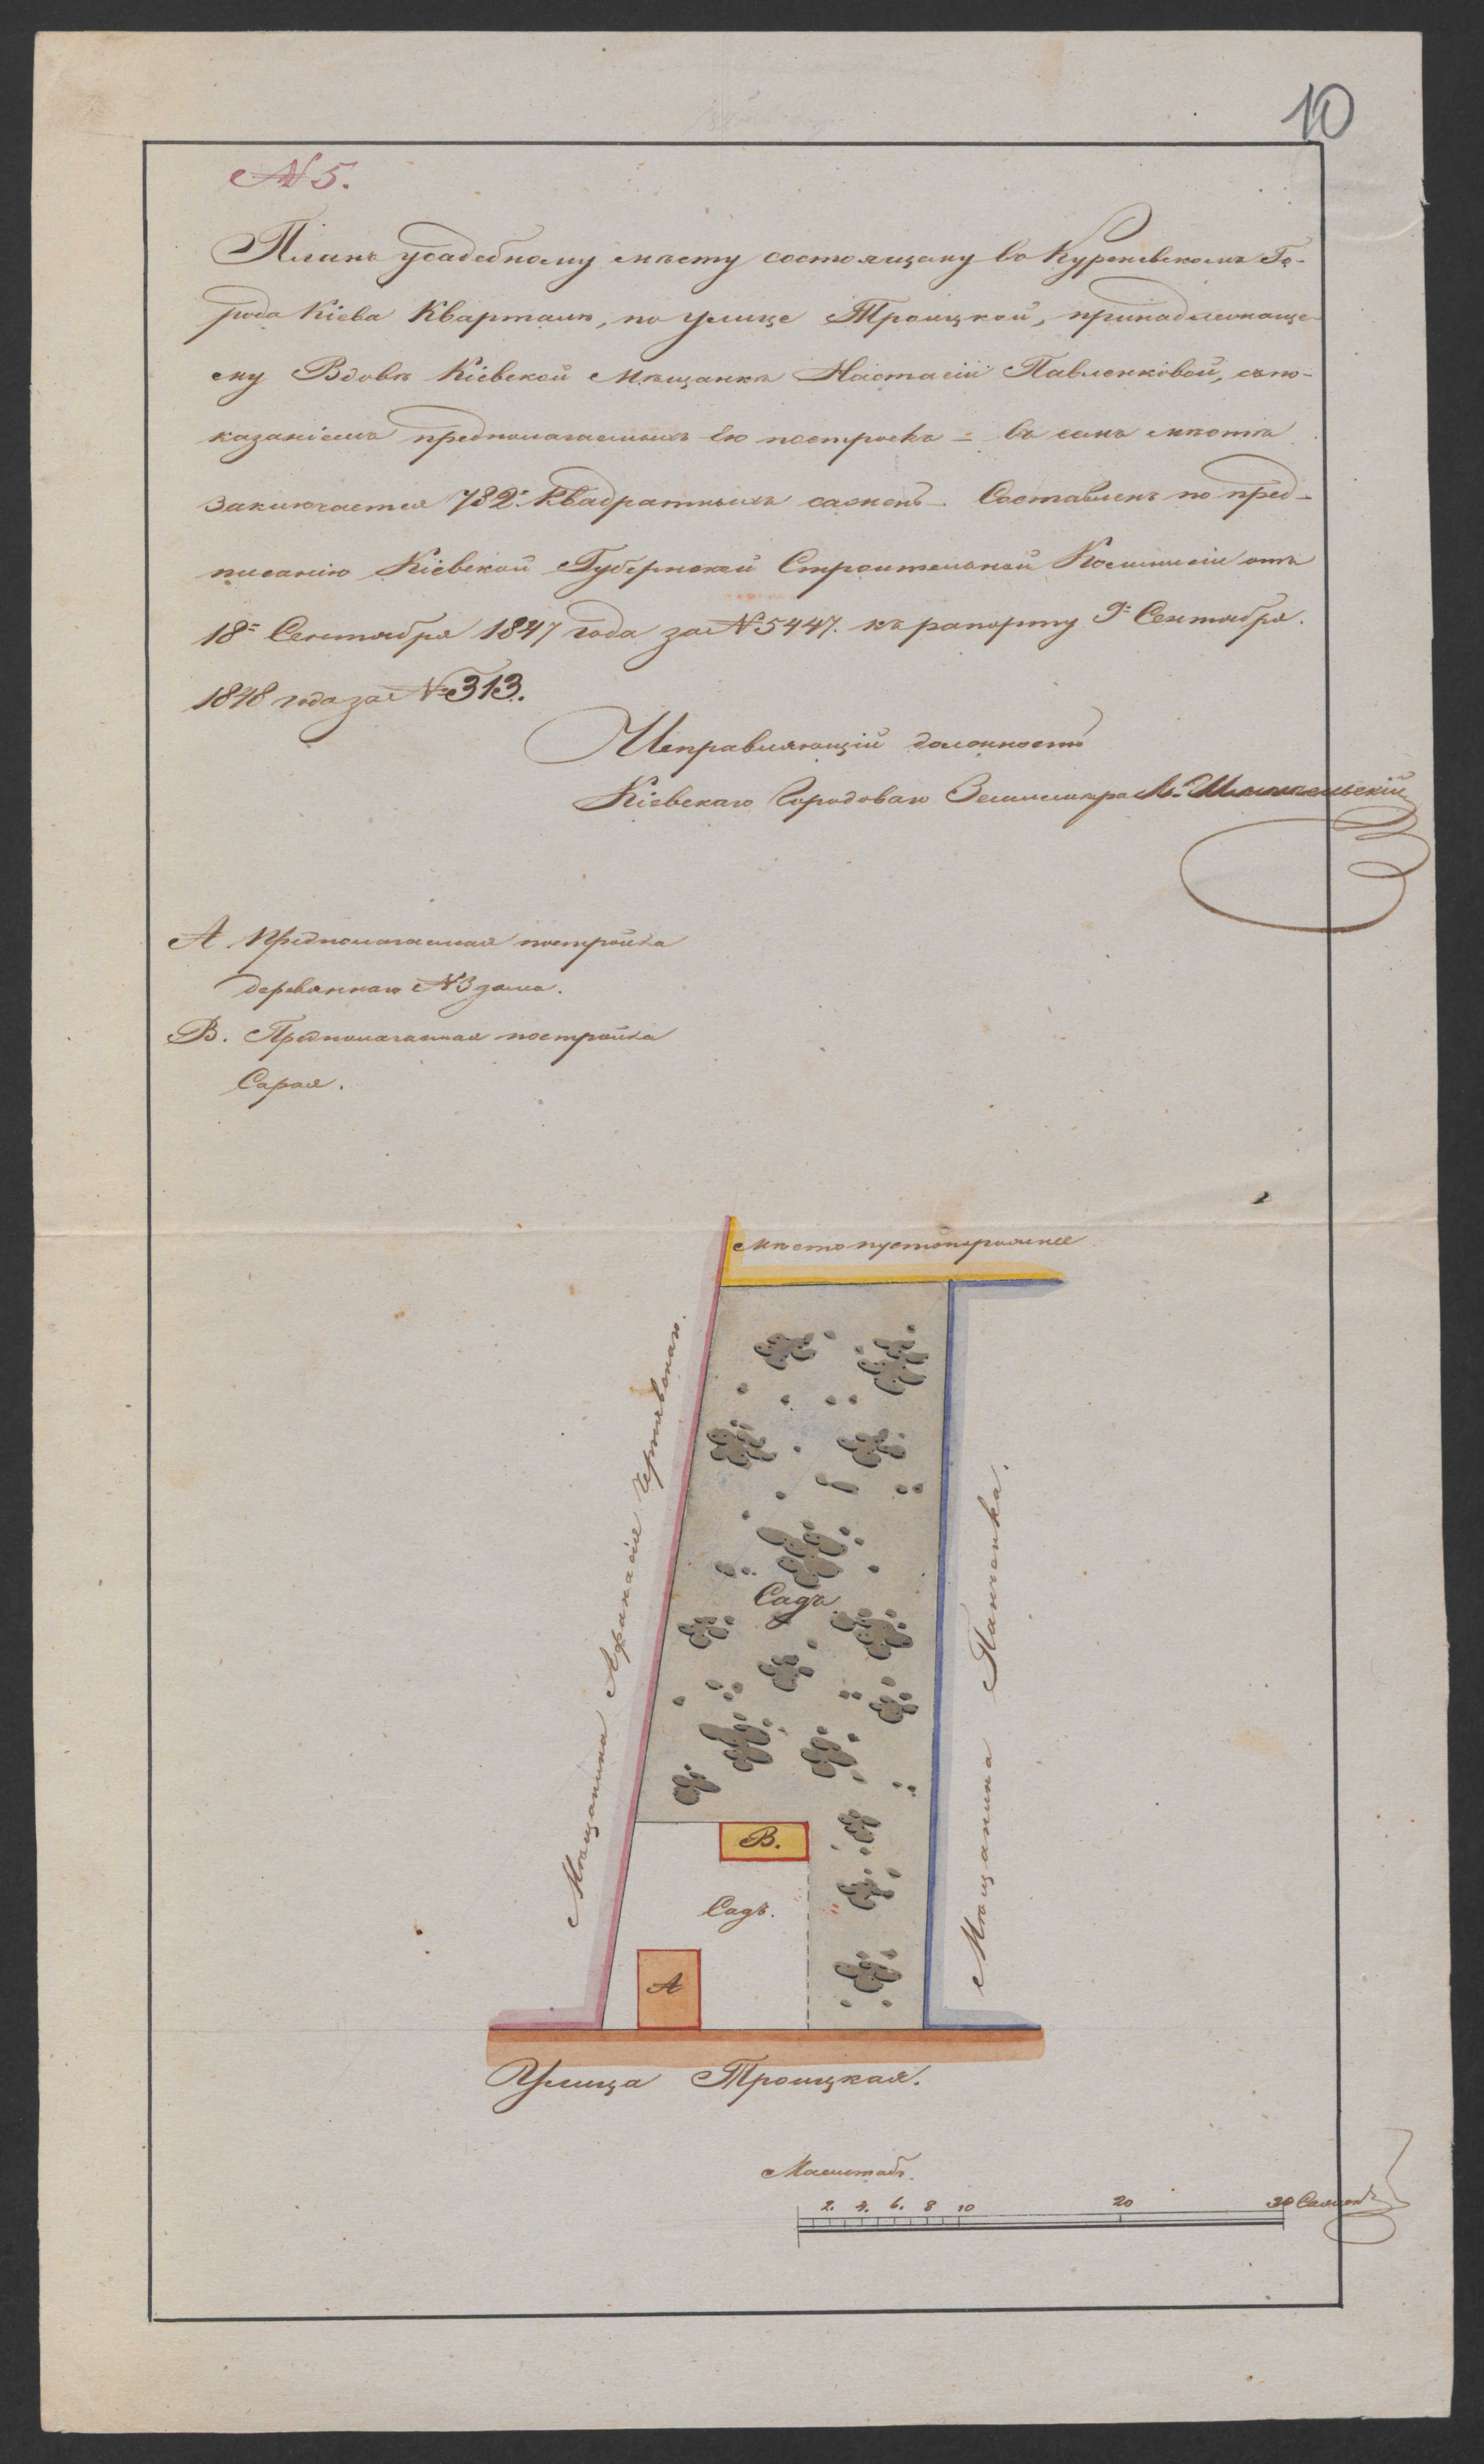 10
№ 5.
Планъ усадебному мѣсту состоящему въ Куреневскомъ Го-
рода Кіева Кварталѣ, по улице Троицкой, принадлежаще-
му Вдовѣ Кіевской Мѣщанкѣ Настасіи Павленковой, съ по-
казаніемъ предполагаемыхъ Ею построекъ = въ семъ мѣстѣ
заключается 782 квадратныхъ сажень - Составленъ по пред-
писанію Кіевской Губернской Строительной Коммисіи отъ
18 Сентября 1847 года за № 5447. къ рапорту 9 Сентября.
1848 года за № 313.
Исправляющій должность
Кіевскаго Городоваго Землемѣра
А. Предполагаемая постройка
деревяннаго № 3 дома.
В. Предполагаемая постройка
Сарая.
Мѣсто пустопорожнее
Мѣщанина Афанасія
Садъ
Мѣщанина Панченка.
В.
Садъ.
А
Улица Троицкая.
Масштабъ.
2. 4. 6. 8 10 20 30 Сажень